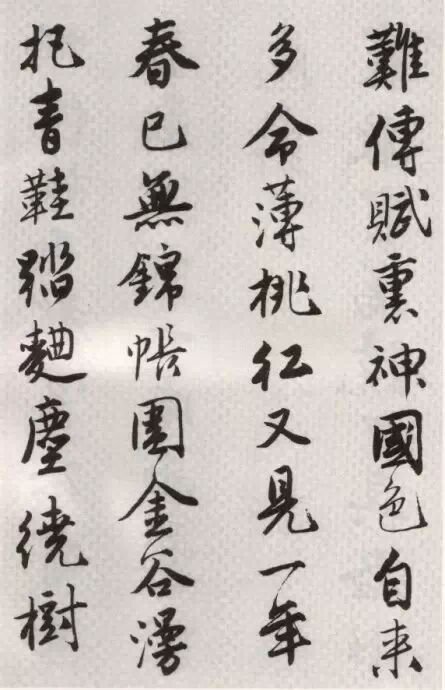 難傳賦裏神國色自来
多命薄桃红又見一年
春已無錦帳圍金谷漫
把青鞋踏麯塵繞樹